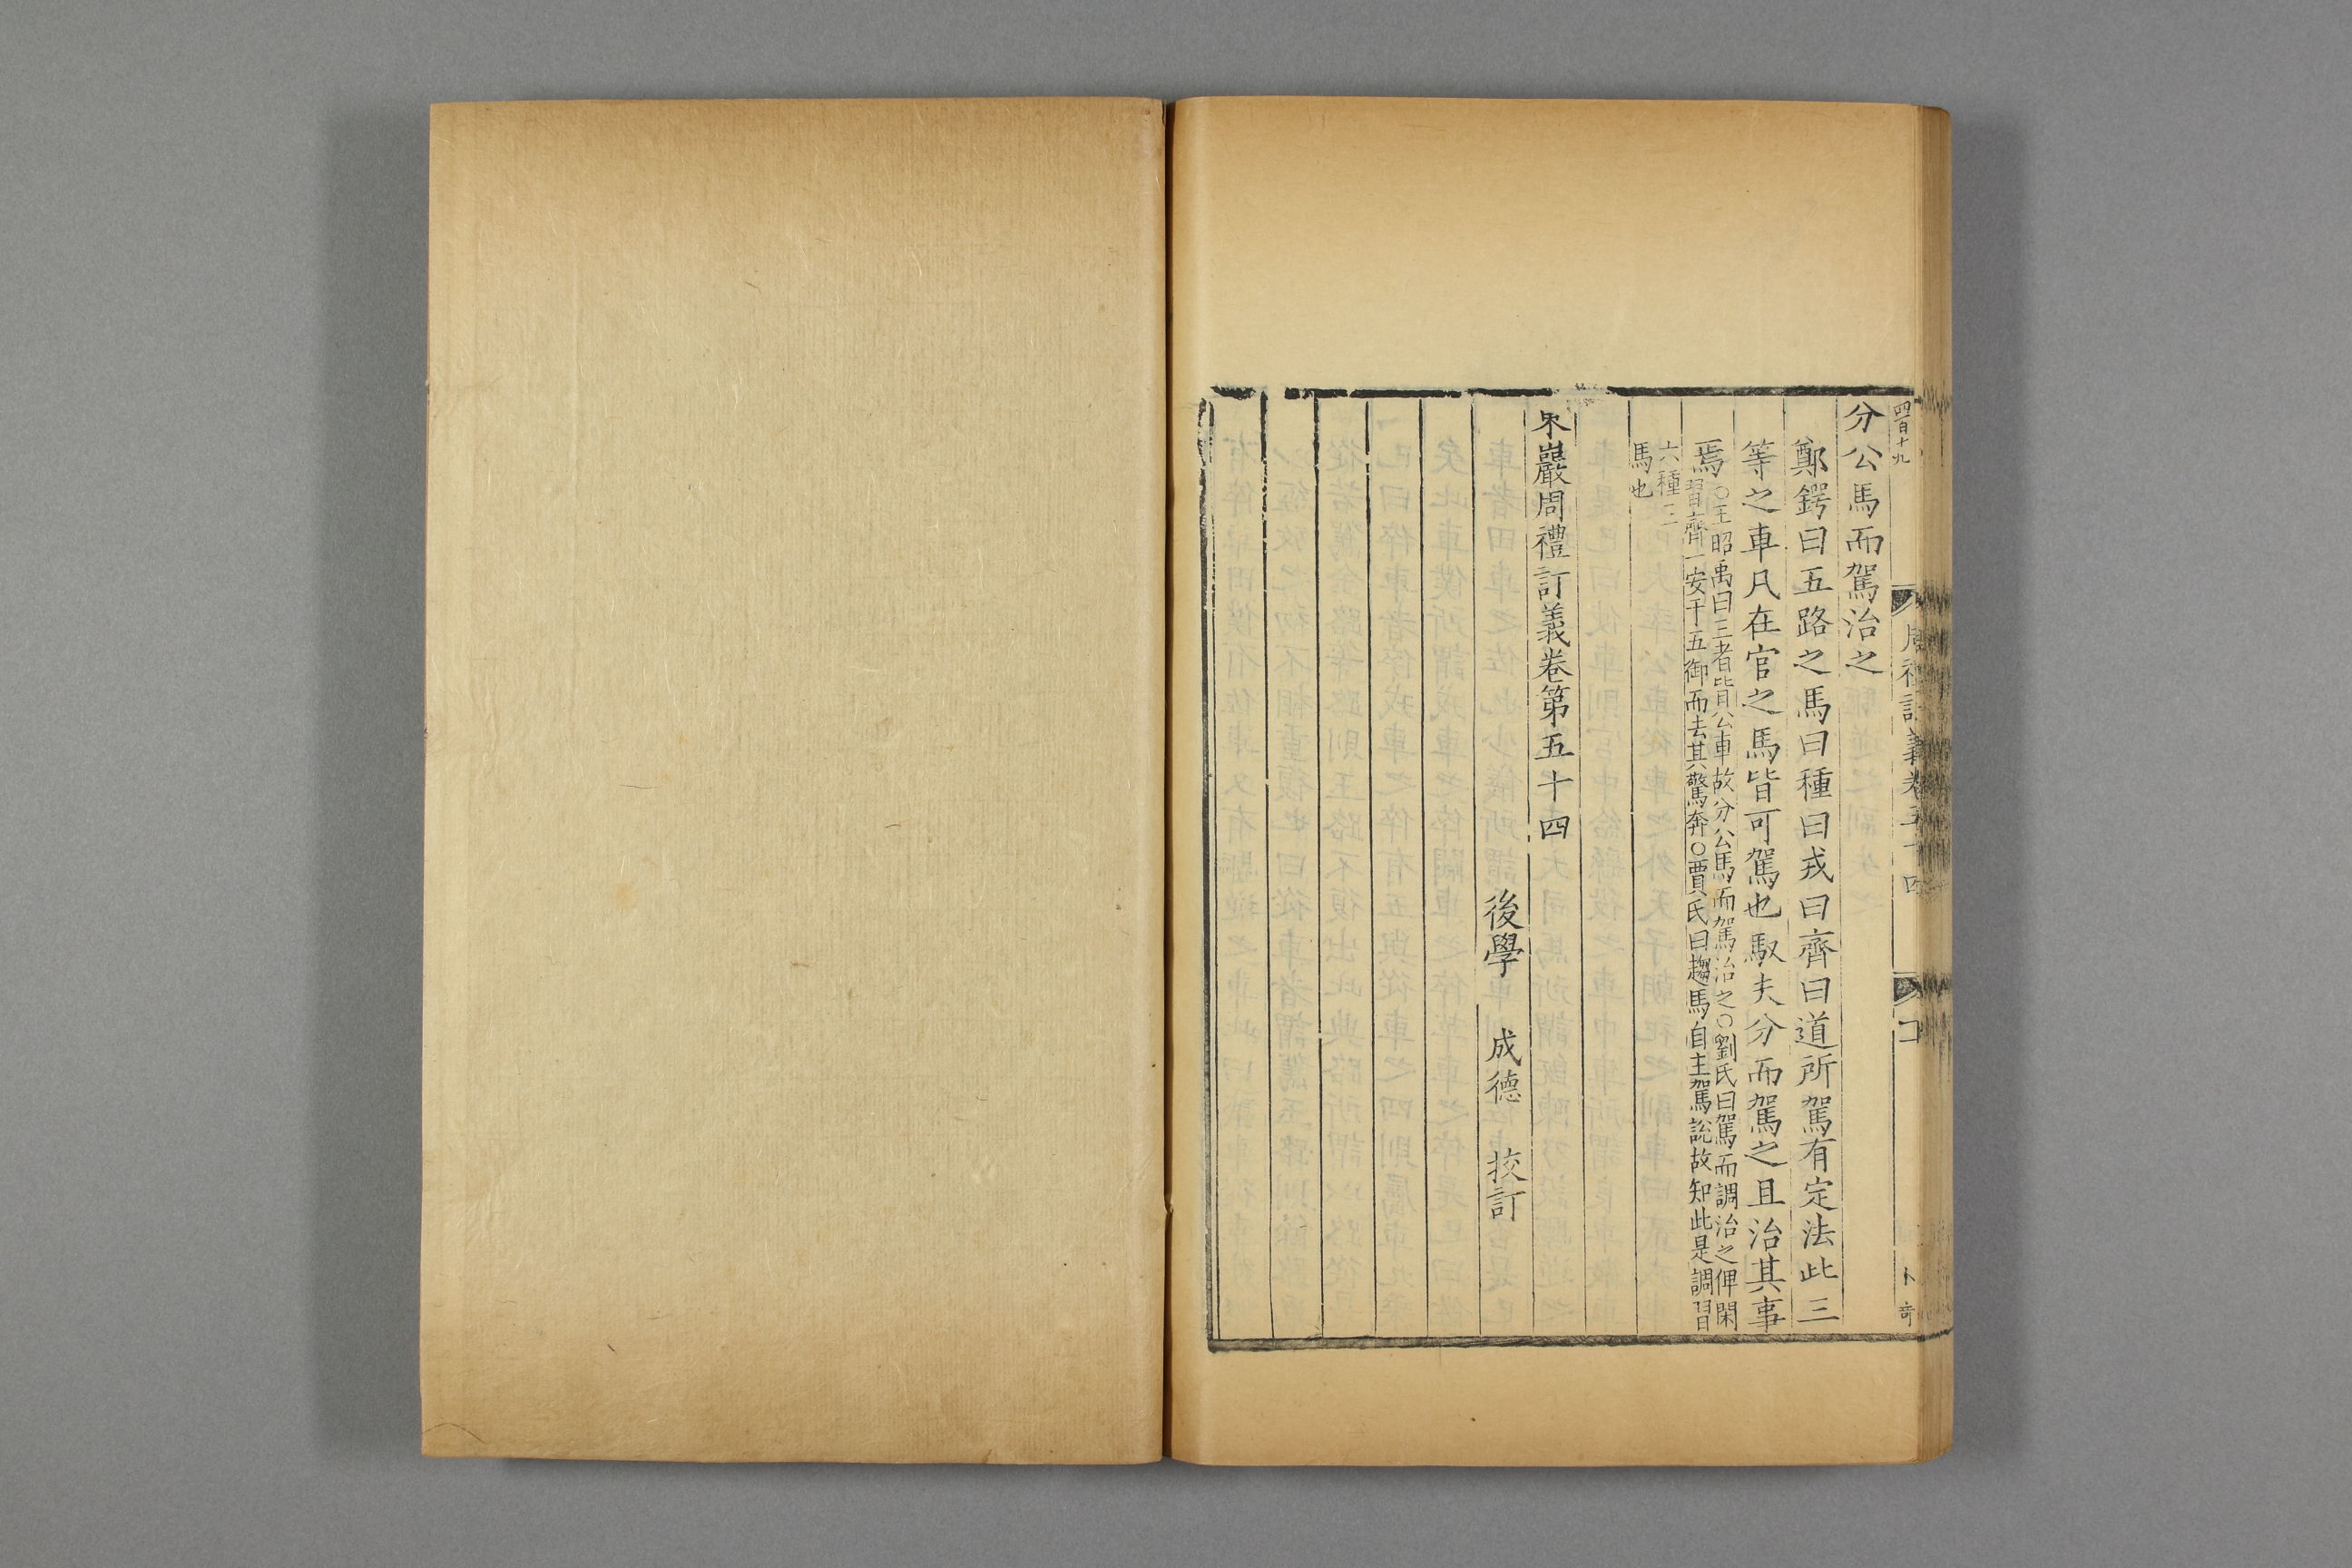 四百十九
周禮訂義卷五十四
卜奇
分公馬而駕治之
鄭鍔曰五路之馬曰種曰戎曰齊曰道所駕有定法此三
等之車凡在官之馬皆可駕也馭夫分而駕之且治其事
焉
○王昭禹曰三者皆公車故分公馬而駕治之○劉氏曰駕而調治之俾閑
習齊一安于五御而去其驚奔○賈氏曰趣馬自主駕說故知此是調習
六種之
馬也
東巖周禮訂義卷第五十四
後學 成德 挍訂